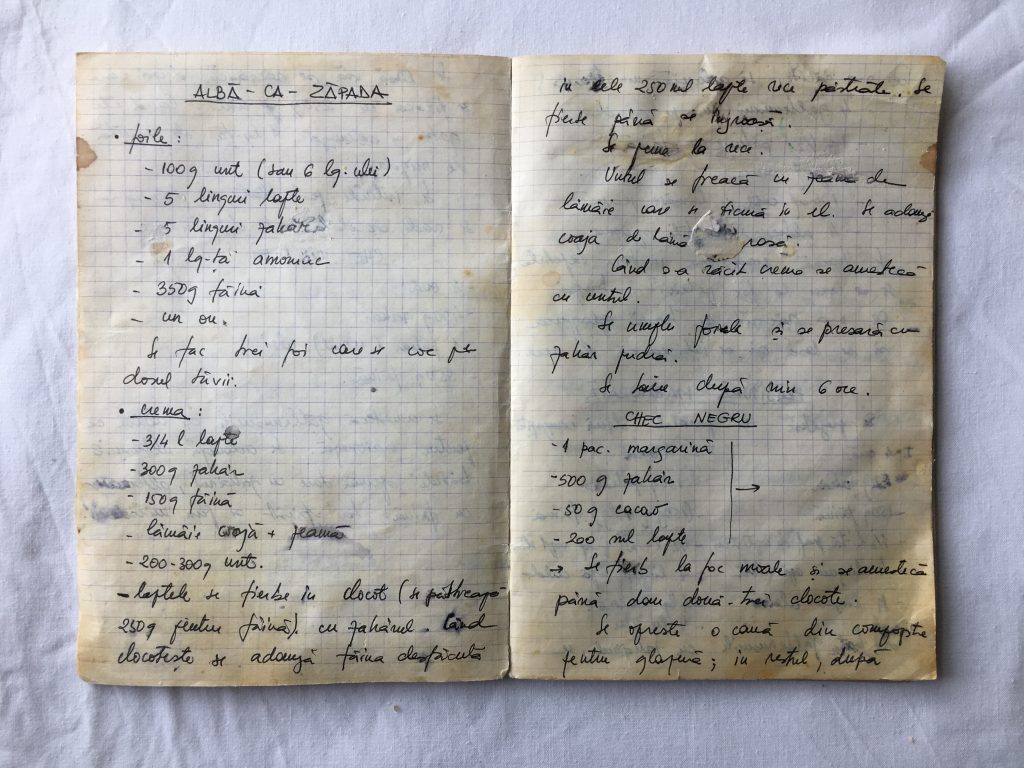 ALBĂ - CA - ZĂPADA
• foile :
- 100g unt (sau 6 lg. ulei)
- 5 linguri lapte
- 5 linguri zahăr
- 1 lg-ță amoniac
- 350g făină
- un ou.
Se fac trei foi care se coc pe
dosul tăvii.
• crema :
- 3/4 l lapte
- 300g zahăr
- 150g făină
- lămâie coajă + zeamă
- 200-300g unt.
- laptele se fierbe in clocot (se păstrează
250g pentru făină) cu zahărul. Când
clocotește se adaugă făina desfăcută
in cele 250 ml lapte rece păstrate. Se
fierbe până se îngroașă.
Se pune la rece.
Untul se freacă cu zeama de
lămâie care se toarnă în el. Se adaugă
coaja de lămâ rasă.
Când s-a răcit crema se amestecă
cu untul.
Se umplu foile și se presară cu
zahăr pudră.
Se taie după min 6 ore.
CHEC NEGRU
- 1 pac. margarină
- 500 g zahăr
- 50g cacao
- 200 ml lapte
→
→ Se fierb la foc moale și se amestecă
până dau două-trei clocote.
Se oprește o cană din compoziție
pentru glazură; in restul, după